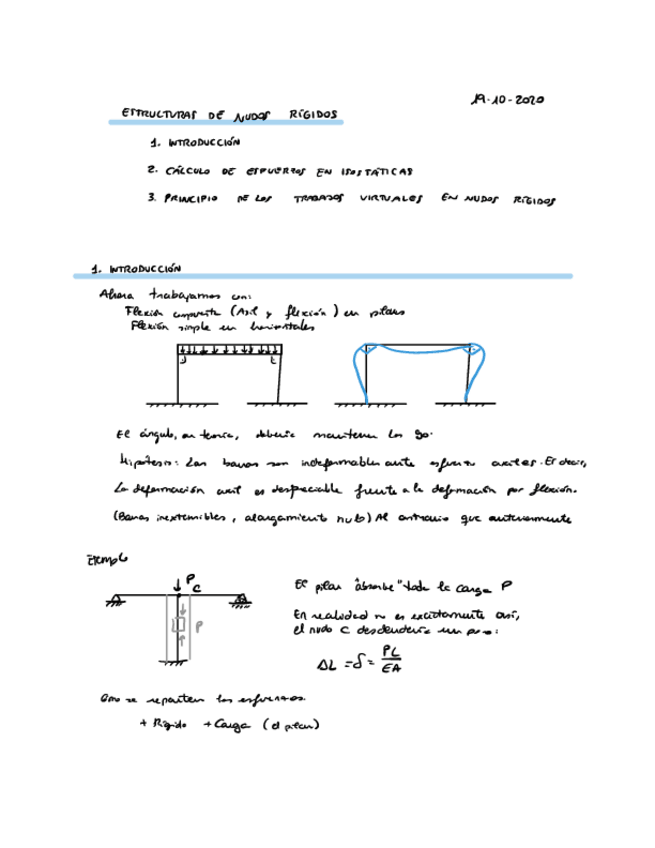 19-10-2020
ESTRUCTURAS DE NUDOS RÍGIDOS
1. INTRODUCCIÓN
2. CÁLCULO DE ESFUERZOS EN ISOSTÁTICAS
3. PRINCIPIO DE LOS TRABAJOS VIRTUALES EN NUDOS RÍGIDOS
1. INTRODUCCIÓN
Ahora trabajamos con:
Flexión compuesta (Axil y flexión) en pilares
Flexión simple en horizontales
El ángulo, en teoría, debería mantener los 90º
Hipótesis: Las barras son indeformables ante esfuerzos axiles. Es decir,
La deformación axil es despreciable frente a la deformación por flexión.
(Barras inextensibles, alargamiento nulo) Al contrario que anteriormente
Ejemplo
P
C
P
El pilar "absorbe" toda la carga P
En realidad no es exactamente así,
el nudo C descendería un poco:
ΔL = δ = PL/EA
Como se reparten los esfuerzos.
+ Rígido + Carga (el pilar)